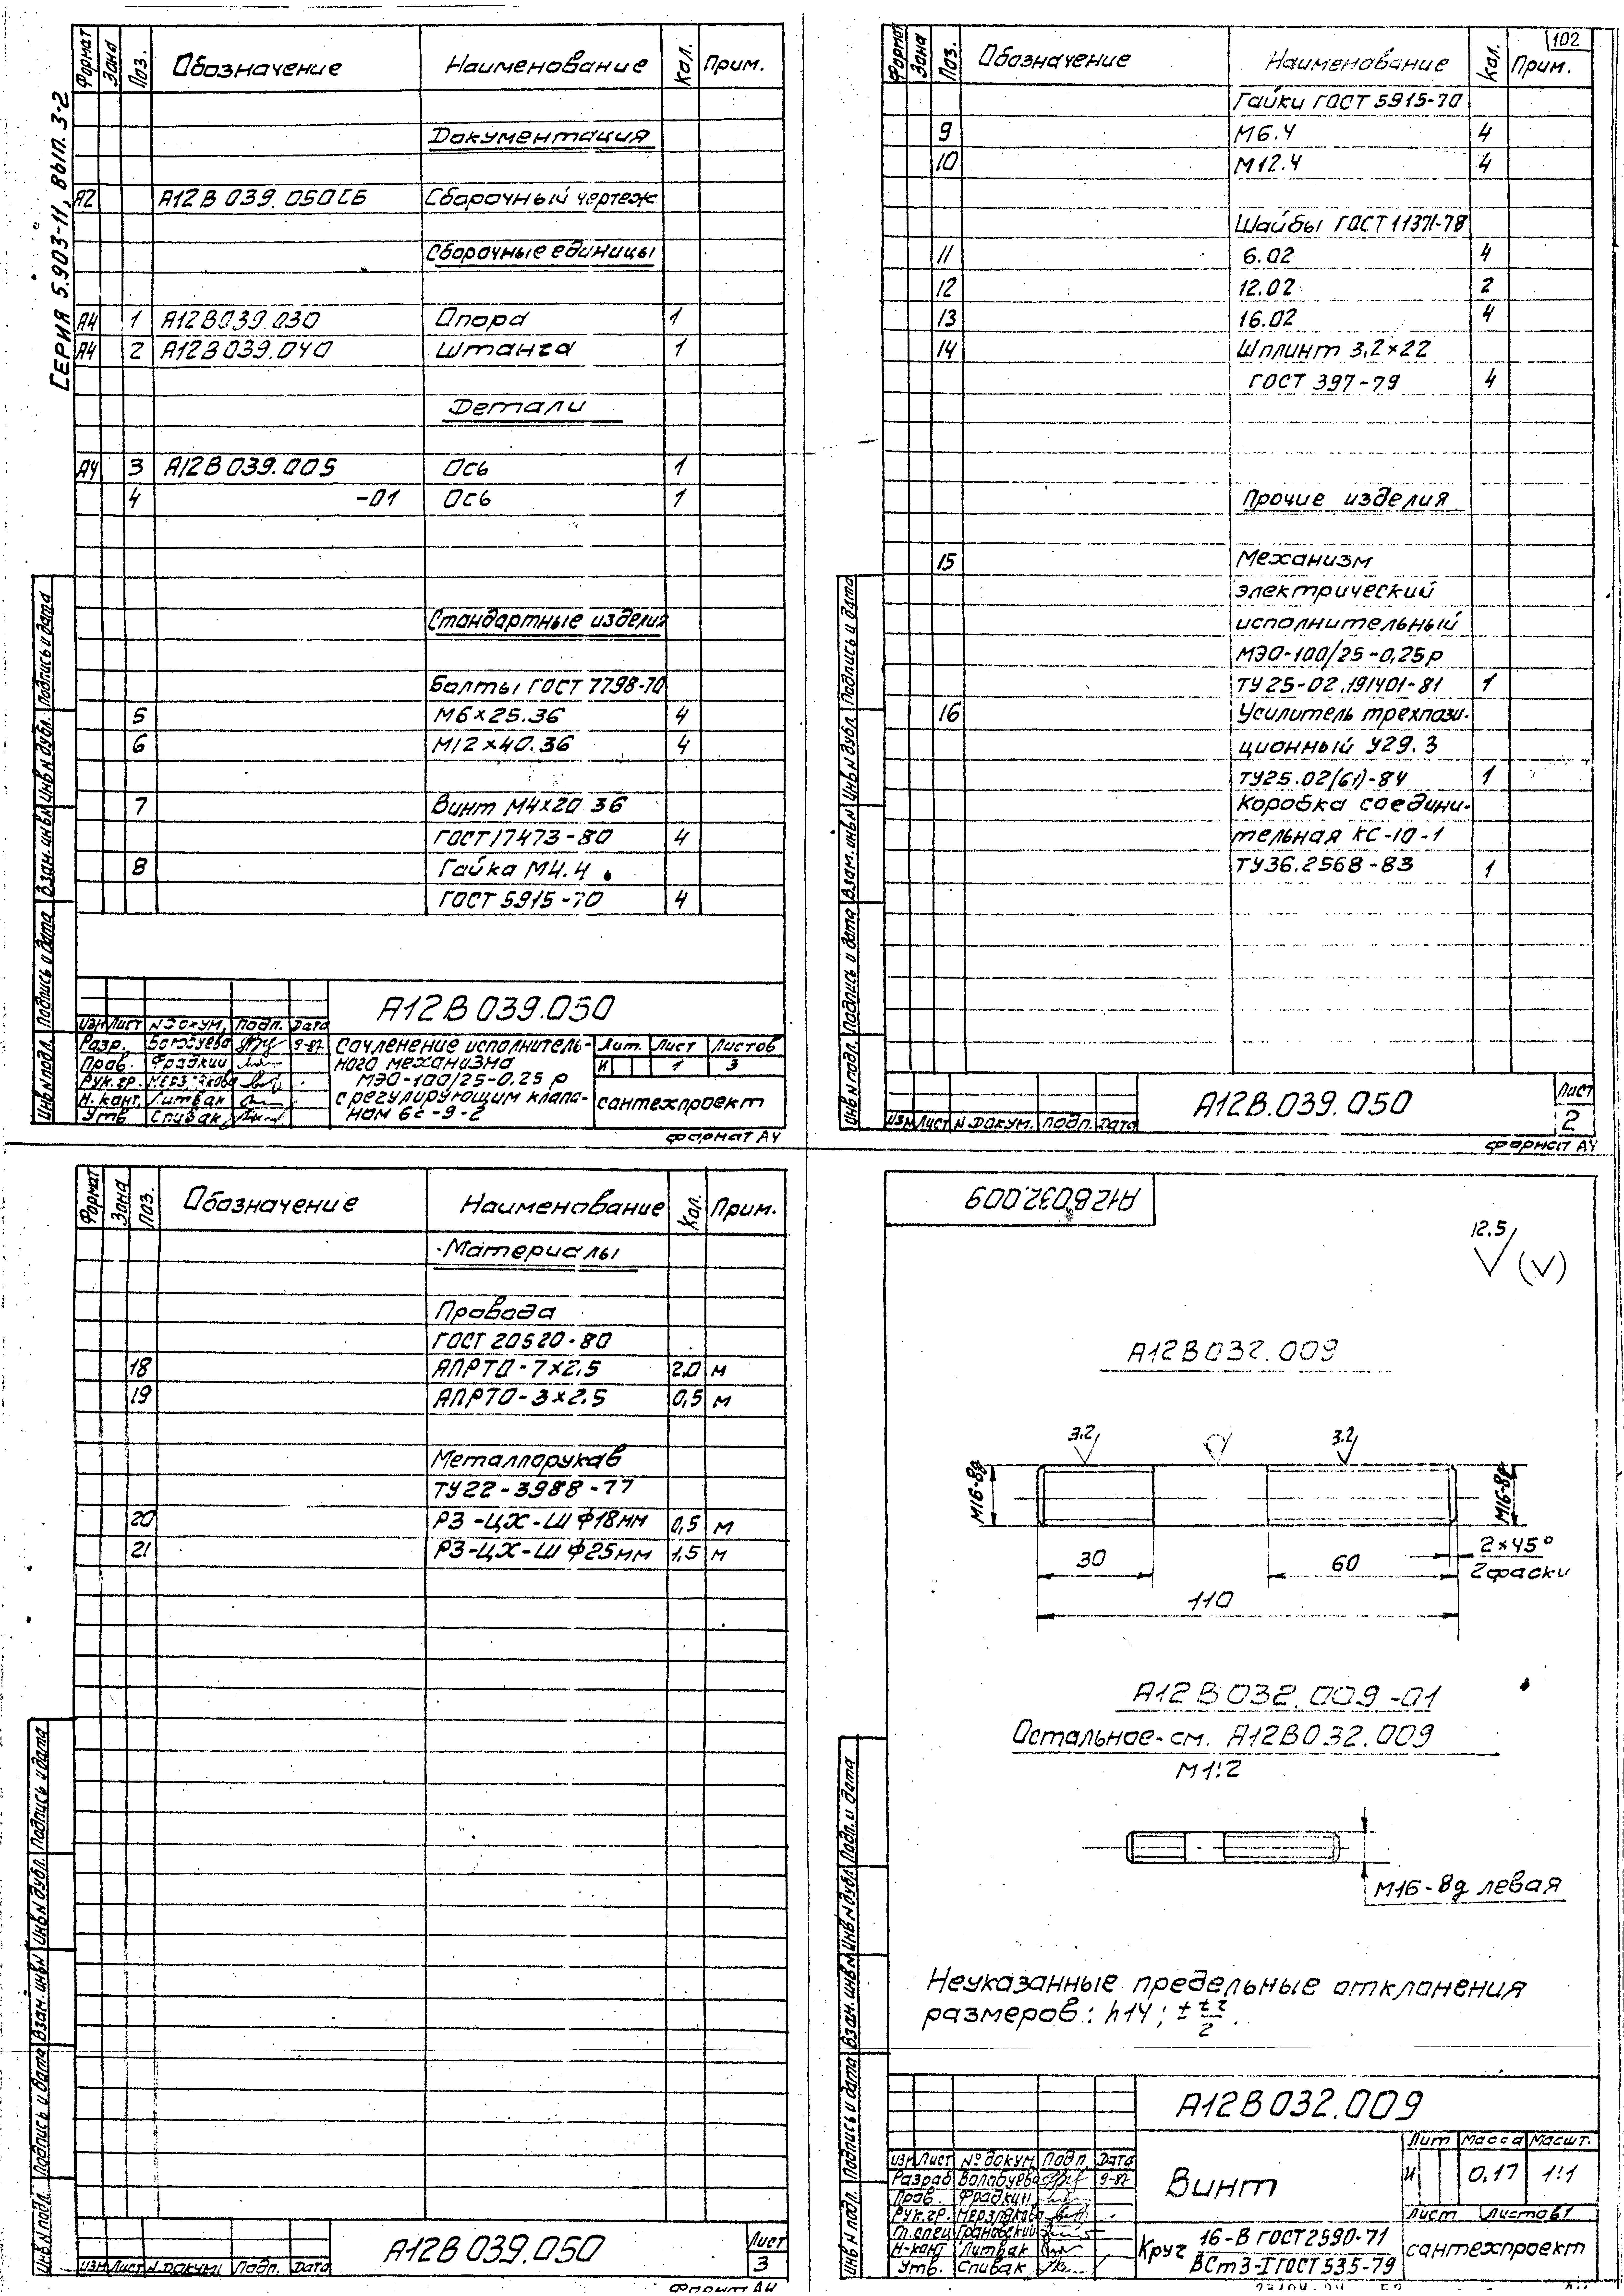 СЕРИЯ 5.903-11, вып. 3-2
Формат Зона Поз. Обозначение Наименование Кол. Прим.
Документация
А2 А12В 039.050СБ Сборочный чертеж
Сборочные единицы
А4 1 А12В039.030 Опора 1
А4 2 А12В039.040 Штанга 1
Детали
А4 3 А12В039.005 Ось 1
4 -01 Ось 1
Стандартные изделия
Болты ГОСТ 7798-70
5 М6×25.36 4
6 М12×40.36 4
7 Винт М4×20 36
ГОСТ 17473-80 4
8 Гайка М4.4
ГОСТ 5915-70 4
Инв N подл. Подпись и дата Взам. инв N Инв N дубл. Подпись и дата
А12В039.050
Изм Лист N докум. Подп. Дата
Разр. 9-87
Пров. Фрадкин
Рук. гр.
Н. конт. Литвак
Утв Спивак
Сочленение исполнитель-
ного механизма
МЭО-100/25-0.25 р
с регулирующим клапа-
ном 6с-9-2
Лит. Лист Листов
И 1 3
сантехпроект
Формат А4
102
Формат Зона Поз. Обозначение Наименование Кол. Прим.
Гайки ГОСТ 5915-70
9 М6.4 4
10 М12.4 4
Шайбы ГОСТ 11371-78
11 6.02 4
12 12.02 2
13 16.02 4
14 Шплинт 3,2×22
ГОСТ 397-79 4
Прочие изделия
15 Механизм
электрический
исполнительный
МЭО-100/25-0,25р
ТУ 25-02.191401-81 1
16 Усилитель трехпози-
ционный У29.3
ТУ25.02(61)-84 1
Коробка соедини-
тельная КС-10-1
ТУ36.2568-83 1
Инв N подл. Подпись и дата Взам. инв N Инв N дубл. Подпись и дата
Изм Лист N докум. Подп. Дата
А12В.039.050
Лист
2
Формат А4
Формат Зона Поз. Обозначение Наименование Кол. Прим.
Материалы
Провода
ГОСТ 20520-80
18 АПРТО-7×2.5 2.0 м
19 АПРТО-3×2.5 0,5 м
Металлорукав
ТУ22-3988-77
20 РЗ-ЦХ-Ш Ф18мм 0,5 м
21 РЗ-ЦХ-Ш Ф25мм 1,5 м
Инв N подл. Подпись и дата Взам. инв N Инв N дубл. Подпись и дата
Изм Лист N докум Подп. Дата
А12В039.050
Лист
3
Формат А4
А12В032.009
12.5 (√)
А12В032.009
3.2 3.2
М16-8g М16-8g
30 60
2×45°
2 фаски
110
А12В032.009-01
Остальное-см. А12В032.009
М1:2
М16-8g левая
Неуказанные предельные отклонения
размеров: h14; ± t2/2.
Инв N подл. Подпись и дата Взам. инв N Инв N дубл. Подп. и дата
А12В032.009
Изм Лист № докум Подп. Дата
Разраб Волобуева 9-87
Пров. Фрадкин
Рук. гр. Мерзлякова
Гл. спец Грановский
Н-конт Литвак
Утв. Спивак
Винт
Лит Масса Масшт.
И 0,17 1:1
Лист Листов 1
Круг 16-В ГОСТ 2590-71
ВСт3-I ГОСТ 535-79
сантехпроект